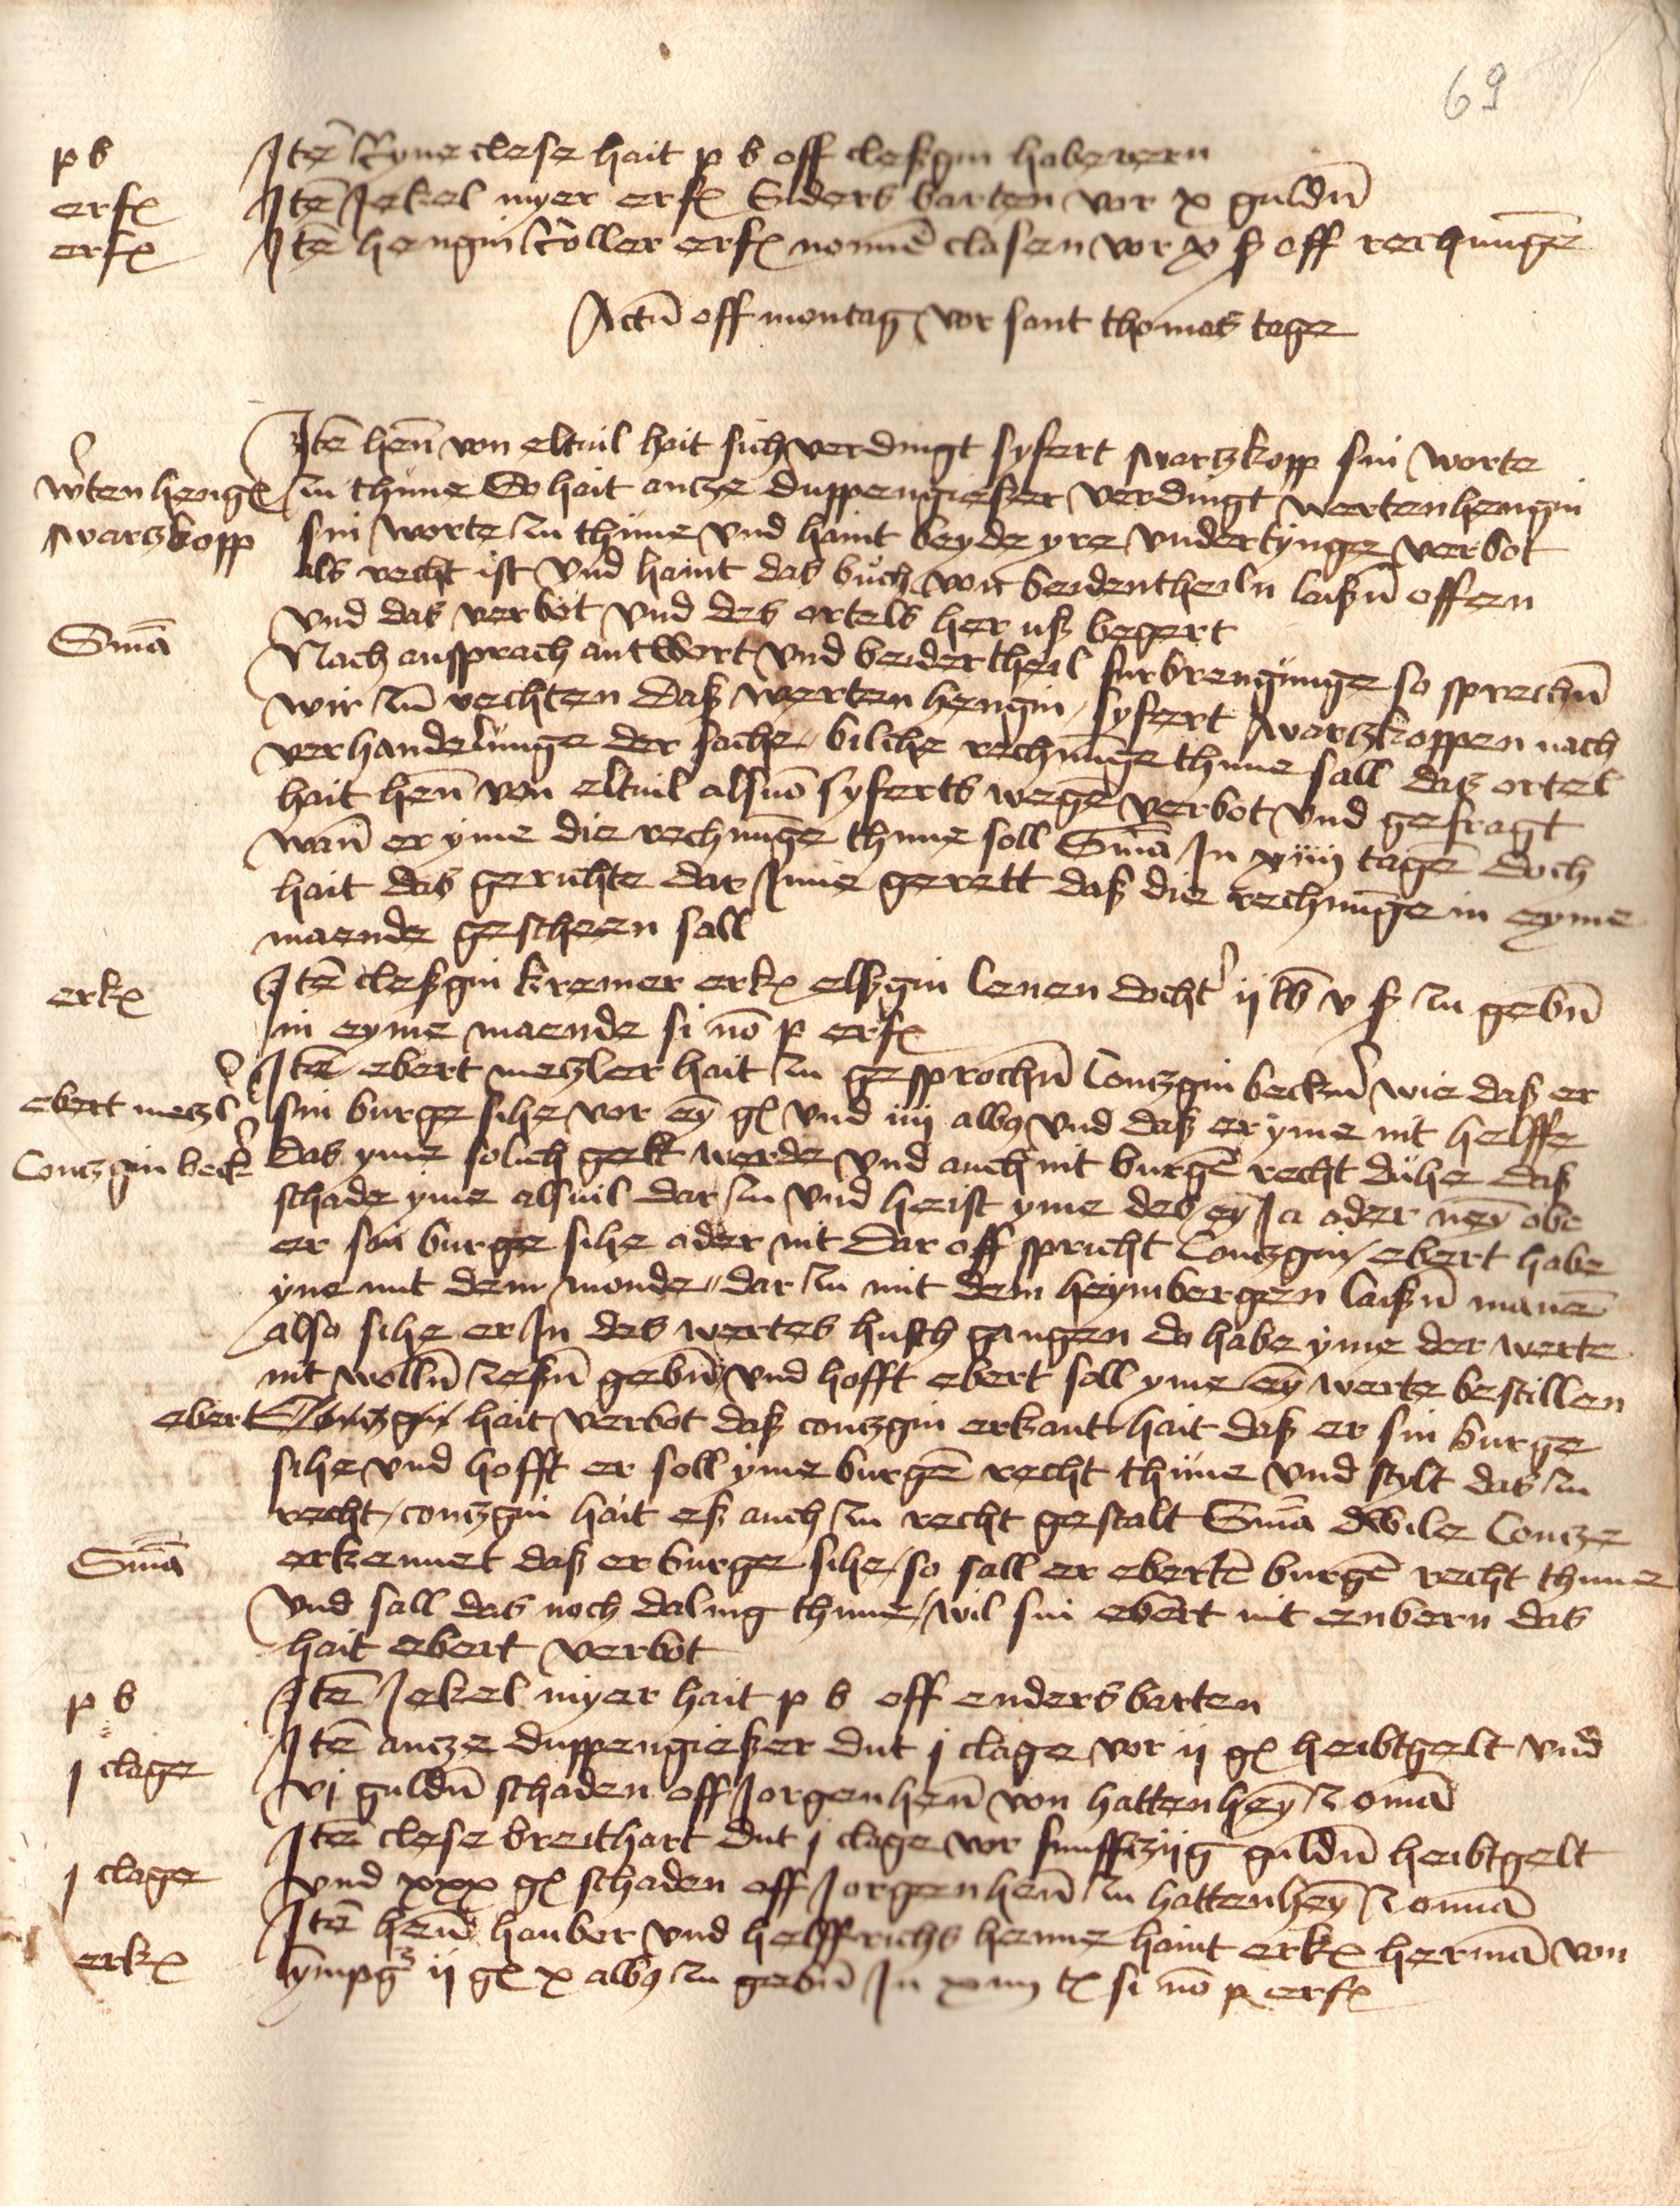 69
p b Itē Ryne clese hait p b off cleßgin haberern
erfꝭ Itē Jekel myer erfꝭ Enders barten vor x guldn̄
erfꝭ Itē hengin Koller erfꝭ nonnē clasen vor x ß off rechnūge
Actū off montag vor sant thomas tage
Itē hen̄ von eltuil hait sich verdingt syfert swartzkopp sin worte
w'ten hengꝭ zu thune So hait antze duppengießer verdingt wertenhengin
swartzkopp sin worte zu thune vnd haint beyde yre vnderdynge verbot
als recht ist vnd haint das buch von beidentheiln laißn̄ offen
vnd das verbot vnd des ortels her uß begert
Smā Nach ansprach antwort vnd beidertheil furbrengunge so sprechn̄
wir zū rechten daß werten hengin syfert swartzkoppen nach
verhandelunge der sache bilche rechnūge thune sall das ortel
hait hen̄ von eltuil alsuō syferts wegē verbot vnd gefragt
wan̄ er yme die rechnūge thune soll Smā In xiiij tagē doch
hait das gerichte dar Inne gerett daß die rechnūge in eyme
maende gescheen sall
erkꝭ Itē cleßgin kremer erkꝭ elßgin lenen docht' ij lb v ß zu gebn̄
in eyme maende si nō p erfꝭ
Itē ebert metzler hait zu gesprochn̄ Contzgin beckn̄' wie daß er
ebert metzl' sin burge sihe vor eȳ gꝭ vnd iiij albꝯ vnd daß er yme nit helffe
Contzgin beck' das yme solich gelt werde vnd auch nit burgē recht duhe daß
schade yme alsuil dar zu vnd heist yme des eȳ Ja oder neȳ obe
er sin burge sihe oder nit Dar off spricht Contzgin ebert habe
yne mit dem monde dar zu mit dem heymbergen laißn̄ manē
also sihe er In des wertes husch gangen do habe yme der werte
nit wolln̄ zeßn̄ gebn̄ vnd hofft ebert soll yme eȳ werte bestillen
ebert Contzgin hait verbot daß contzgin erkant hait daß er sin burge
sihe vnd hofft er soll yme burgē recht thune vnd stylt das zu
recht contzgin hait eß auch zu recht gestalt Smā dwile Contze
Smā erkennet daß er burge sihe so sall er ebertē burgē recht thune
vnd sall das noch daling thune wil sin ebert nit enbern das
hait ebert verbot
p b Itē Jekel myer hait p b off enders barten
j clage Itē antze duppengießer dut j clage vor ij gꝭ heibtgelt vnd
vj guldn̄ schaden off Jorgenhen̄ von hattenheȳ z omā
j clage Itē clese breithart dut j clage vor funffzijg guldn̄ heibtgelt
vnd xxx gꝭ schaden off Jorgen hen̄ zu hattenheȳ z omā
erkꝭ Itē hen̄ hauber vnd helffrichs henne haint erkꝭ hermā von
ij gꝭ x albꝯ zu gebn̄ In xiiij tꝭ si nō p erfꝭ